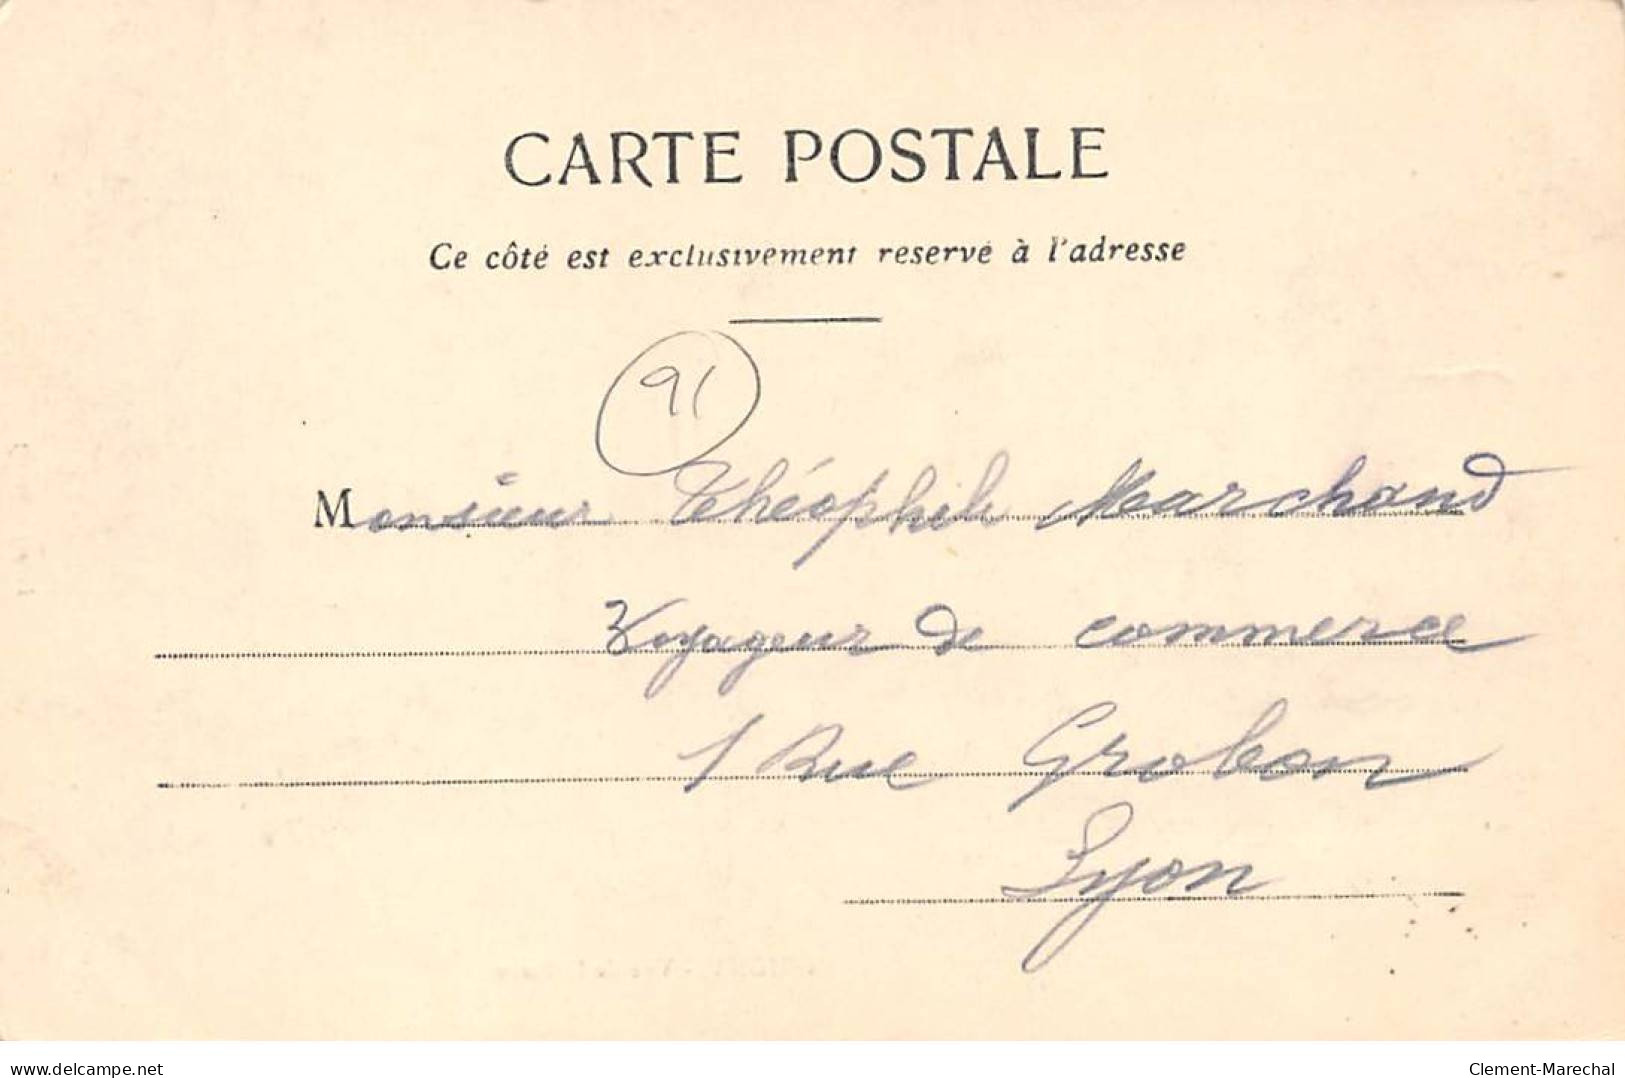 CARTE POSTALE
Ce côté est exclusivement reservé à l'adresse
91
Monsieur Théophile Marchand
Voyageur de commerce
1 Rue Grobon
Lyon
www.delcampe.net
Clement-Marechal